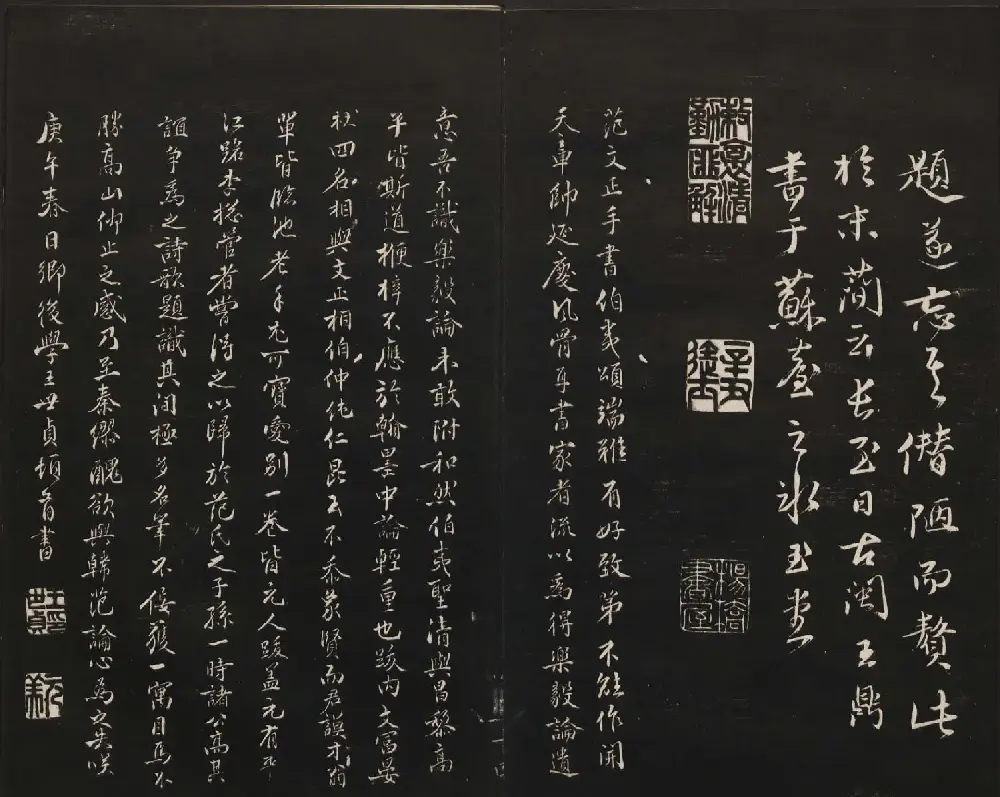 題遂忘其僭陋而贅此
於末簡云長至日古閩王鼎
書于蘇臺之冰玉堂
范文正手書伯夷頌端雅有好致第不能作開
天軍帥延慶風骨耳書家者流以為得樂毅論遺
意吾不識樂毅論未敢附和然伯夷聖清與昌黎高
平皆斯道楩梓不應於翰墨中論輕重也跋內文富晏
杜四名相與文正相伯仲純仁昆云不忝家賢而君謨才翁
單皆臨池老手尤可寶愛別一卷皆元人跋蓋元有
江路李總管者嘗得之以歸於范氏之子孫一時諸公高其
誼爭為之詩歌題識其間極多名筆不佞獲一寓目焉不
勝高山仰止之感乃至秦繆醜欲與韓范論心為之失咲
庚午春日鄉後學王世貞頓首書